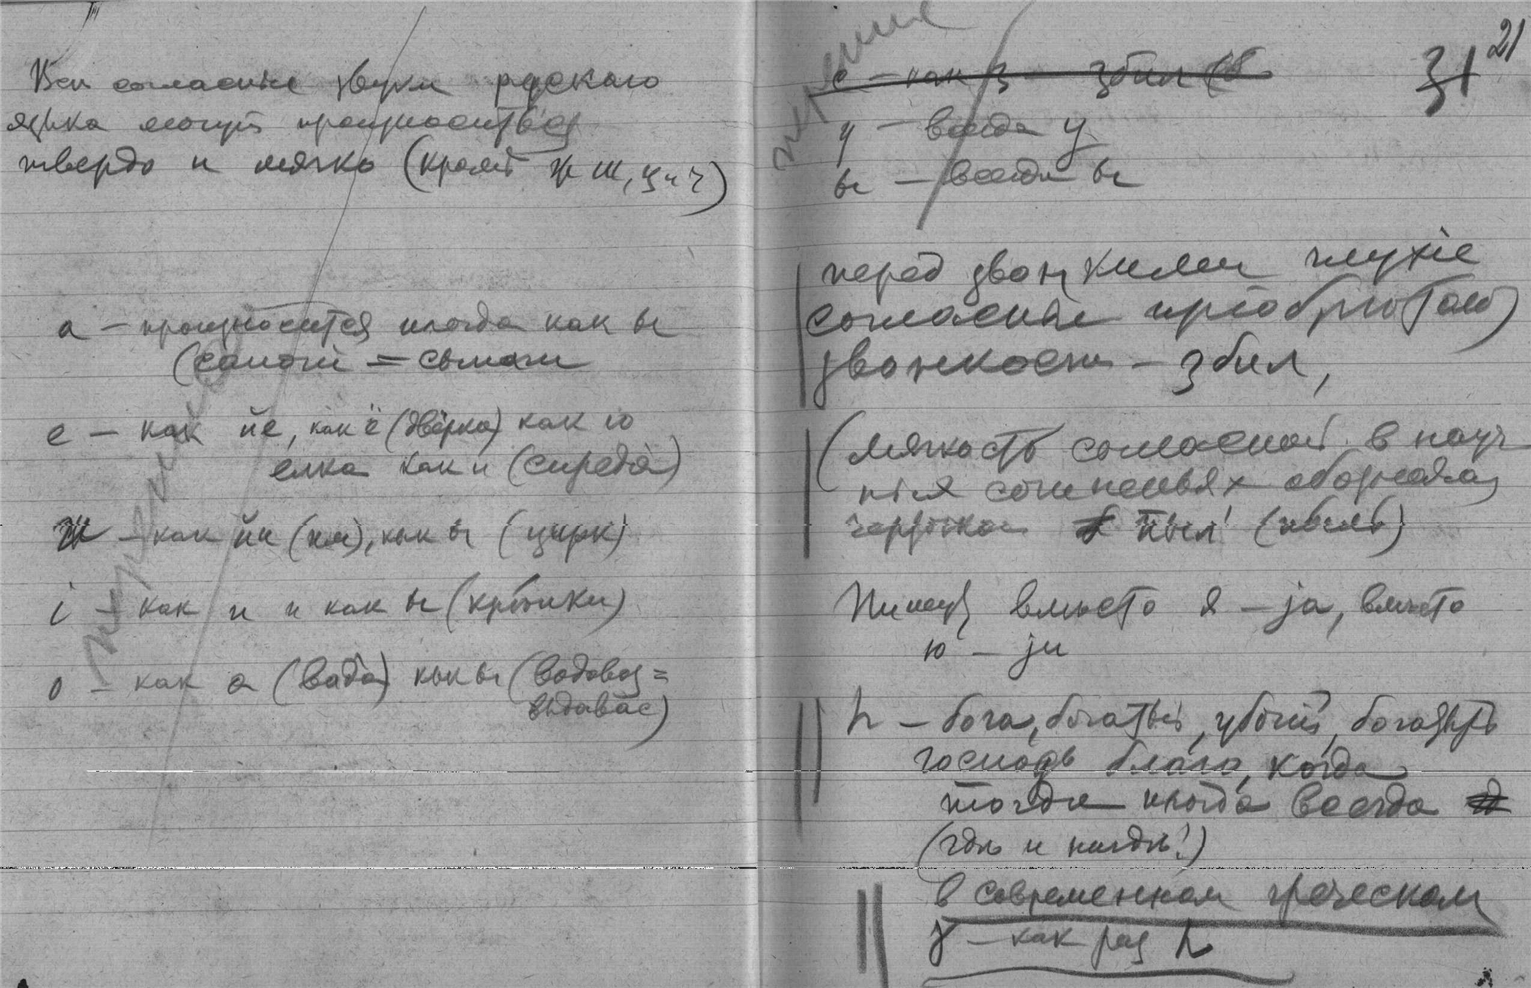 Все согласные звуки рускаго
языка могут произноситься
твердо и мягко (кромѣ ж ш, ц и ч)
а – произносится иногда как ы
(сапоги = сыпаги
е – как йе, как ё (двёрка) как іо
елка как и (сиреда)
и – как йи (им), как ы (цирк)
і – как и и как ы
о – как а (вада) как ы (водовоз =
выдавас)
перенесено
перенесение
с – как з – збил (сб
31 21
у – всегда у
ы – всегда ы
перед звонкими глухіе
согласные пріобрѣтают
звонкость – збил,
(мягкость согласной в науч
ных сочиненьях обозначал
черточкой пыл' (пыль)
Пишут вмѣсто я – ја, вмѣсто
ю – ју
h – бога, богатый, убогій, богатырь
господь благо, когда
тогда иногда всегда
(гдѣ и нигдѣ!)
в современном греческом
γ – как раз h